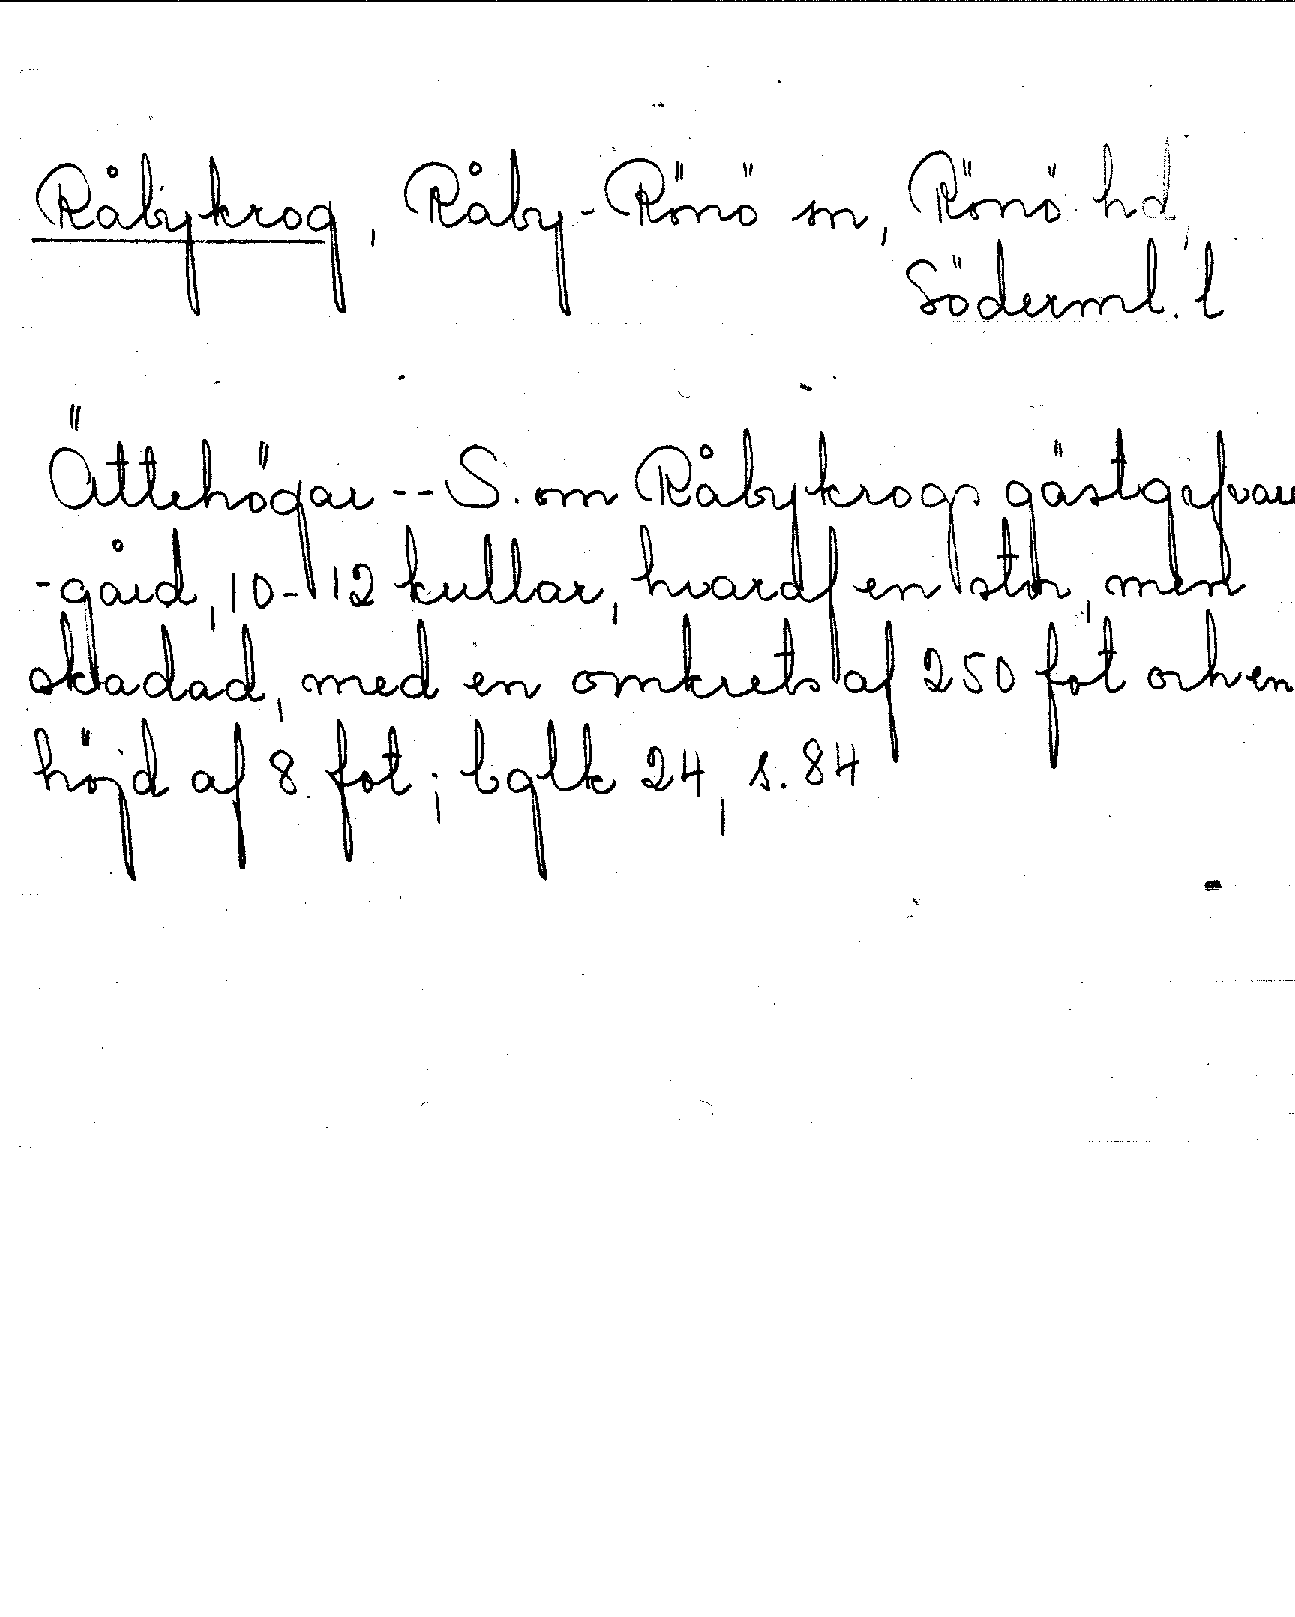 Råbykrog, Råby-Rönö sn, Rönö hd,
Söderml. l
Ättehögar -- S. om Råbykrogs gästgifvar
-gård, 10-12 kullar, hvaraf en stor, men
skadad, med en omkrets af 250 fot och en
höjd af 8 fot; bglk 24, s. 84